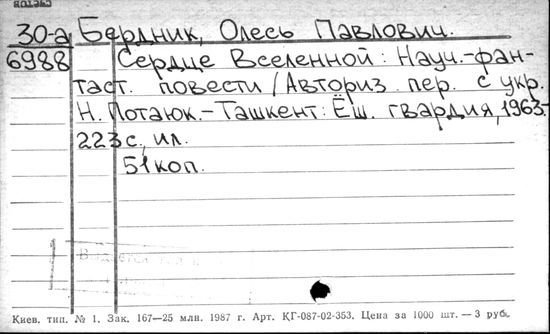 30-а Бердник, Олесь Павлович.
6988 Сердце Вселенной: Науч.-фан-
таст. повести / Авториз. пер. с укр.
Н. Потаюк. – Ташкент: Ёш гвардия, 1963.-
223 с., ил.
51 коп.
Киев. тип. № 1. Зак. 167—25 млн. 1987 г. Арт. КГ-087-02-353. Цена за 1000 шт. — 3 руб.